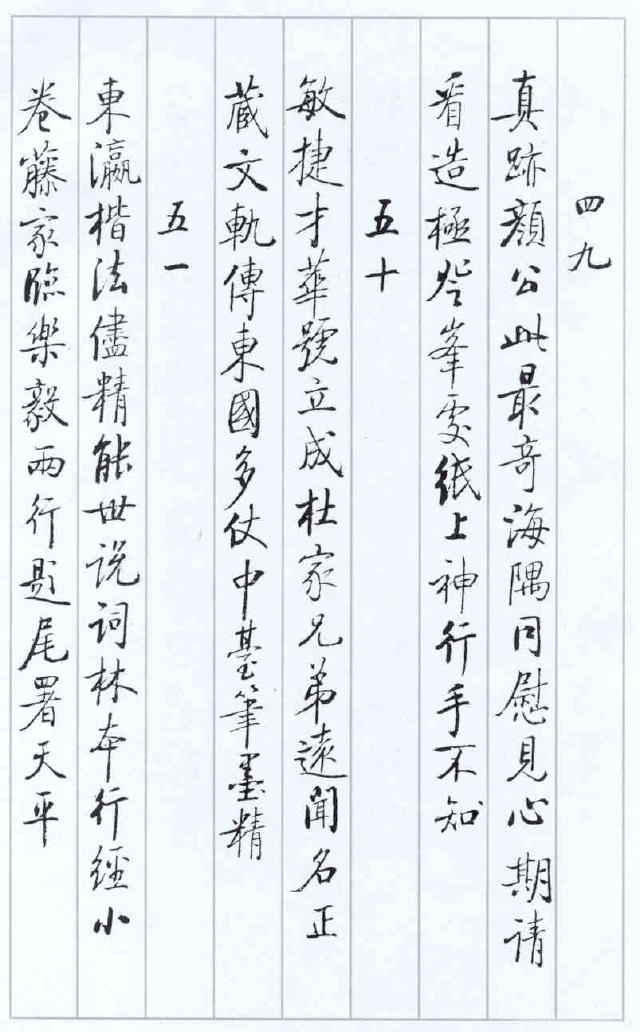 四九
真跡顏公此最奇海隅同慰見心期请
看造極登峯處紙上神行手不知
五十
敏捷才華號立成杜家兄弟遠聞名正
蔵文軌傳東國多仗中臺筆墨精
五一
東瀛楷法儘精能世说詞林本行經小
卷藤家臨樂毅兩行題尾署天平